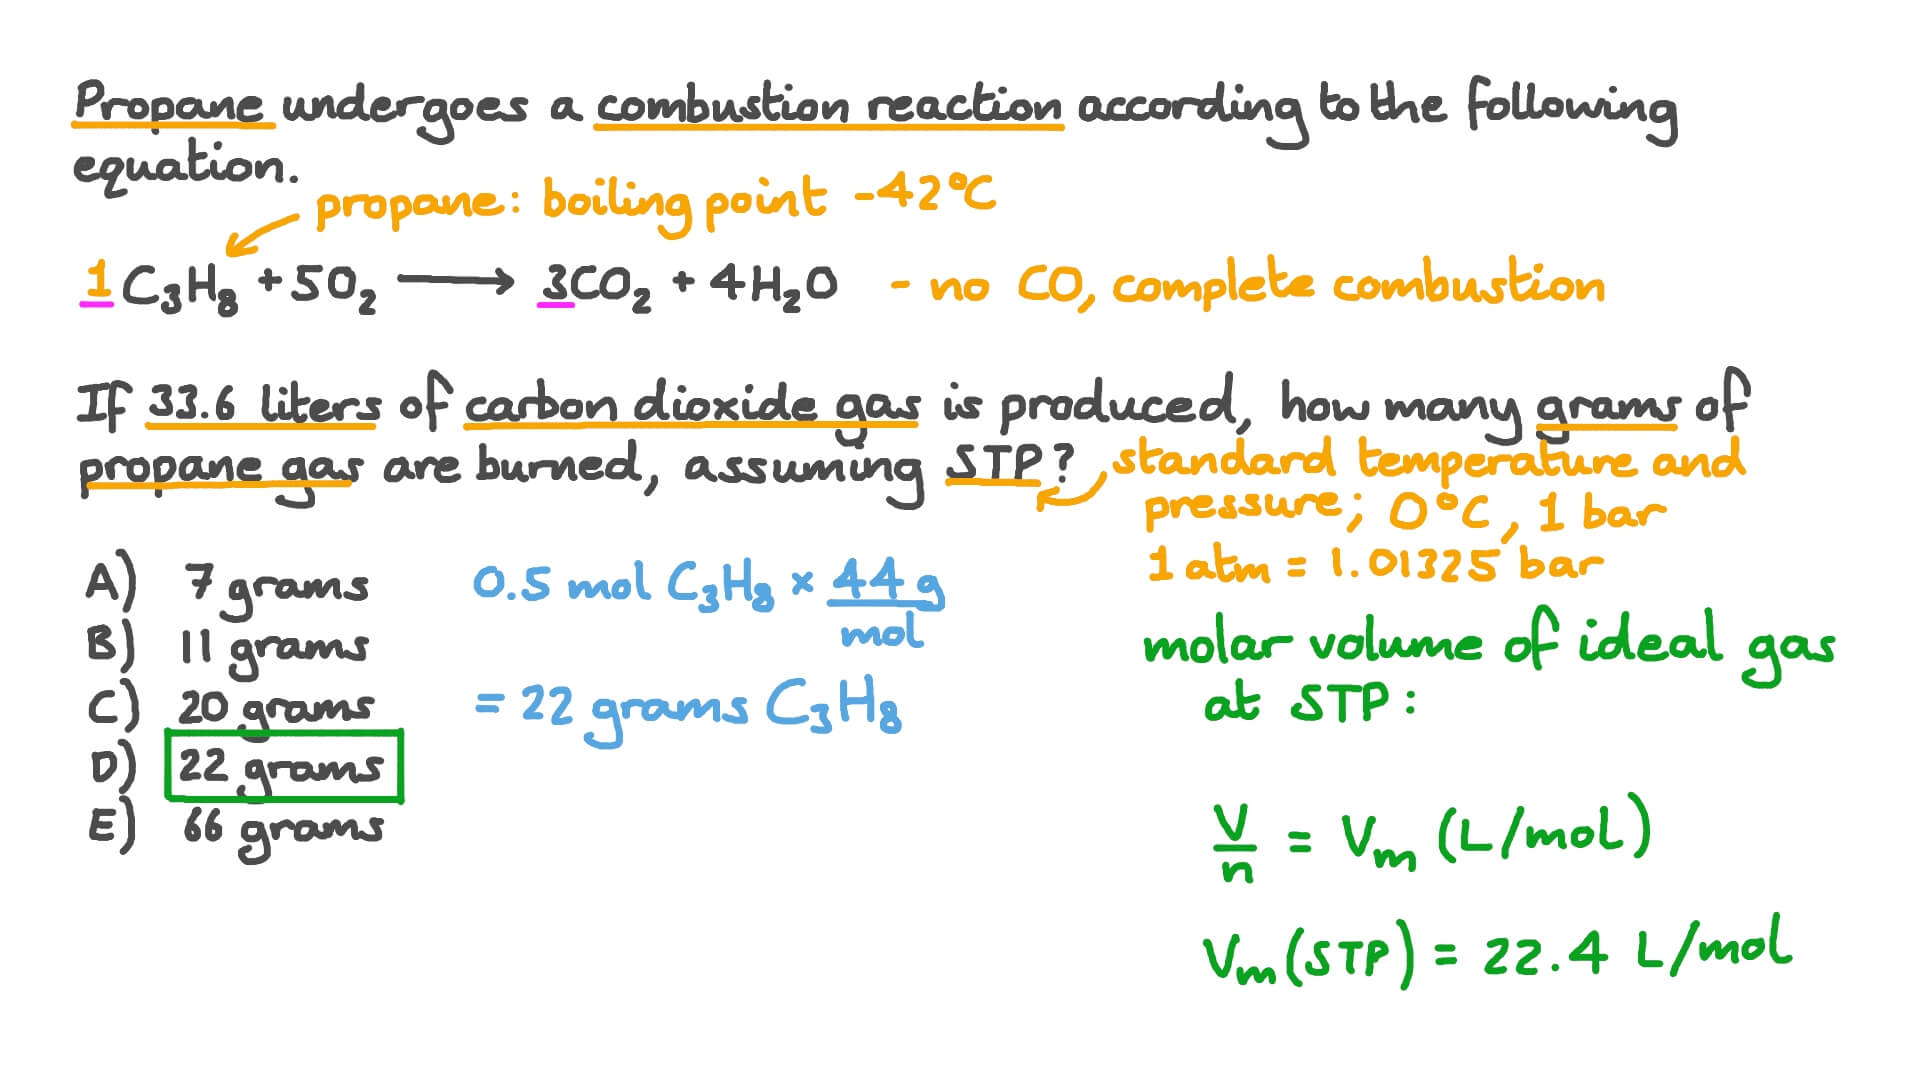 Propane undergoes a combustion reaction according to the following
equation.
propane: boiling point -42°C
1 C₃H₈ + 5O₂ ⟶ 3CO₂ + 4H₂O - no CO, complete combustion
If 33.6 liters of carbon dioxide gas is produced, how many grams of
propane gas are burned, assuming STP?
standard temperature and
pressure; 0°C, 1 bar
1 atm = 1.01325 bar
A) 7 grams
B) 11 grams
C) 20 grams
D) 22 grams
E) 66 grams
0.5 mol C₃H₈ × 44 g
mol
= 22 grams C₃H₈
molar volume of ideal gas
at STP:
V/n = Vₘ (L/mol)
Vₘ(STP) = 22.4 L/mol